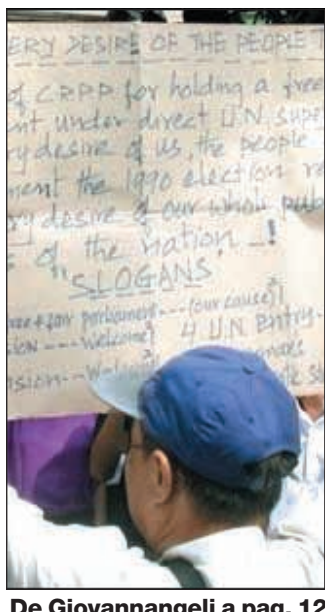 ERY DESIRE OF THE PEOPLE
of CRPP for holding a free
nt under direct U.N. supe
y desire of us, the people
ment the 1990 election re
ry desire of our whole pub
s of the nation !
SLOGANS
free & fair parliament --- (our cause)
ION ---- Welcome 4 U.N. Entry-
nsion -- Welcome
De Giovannangeli a pag. 12